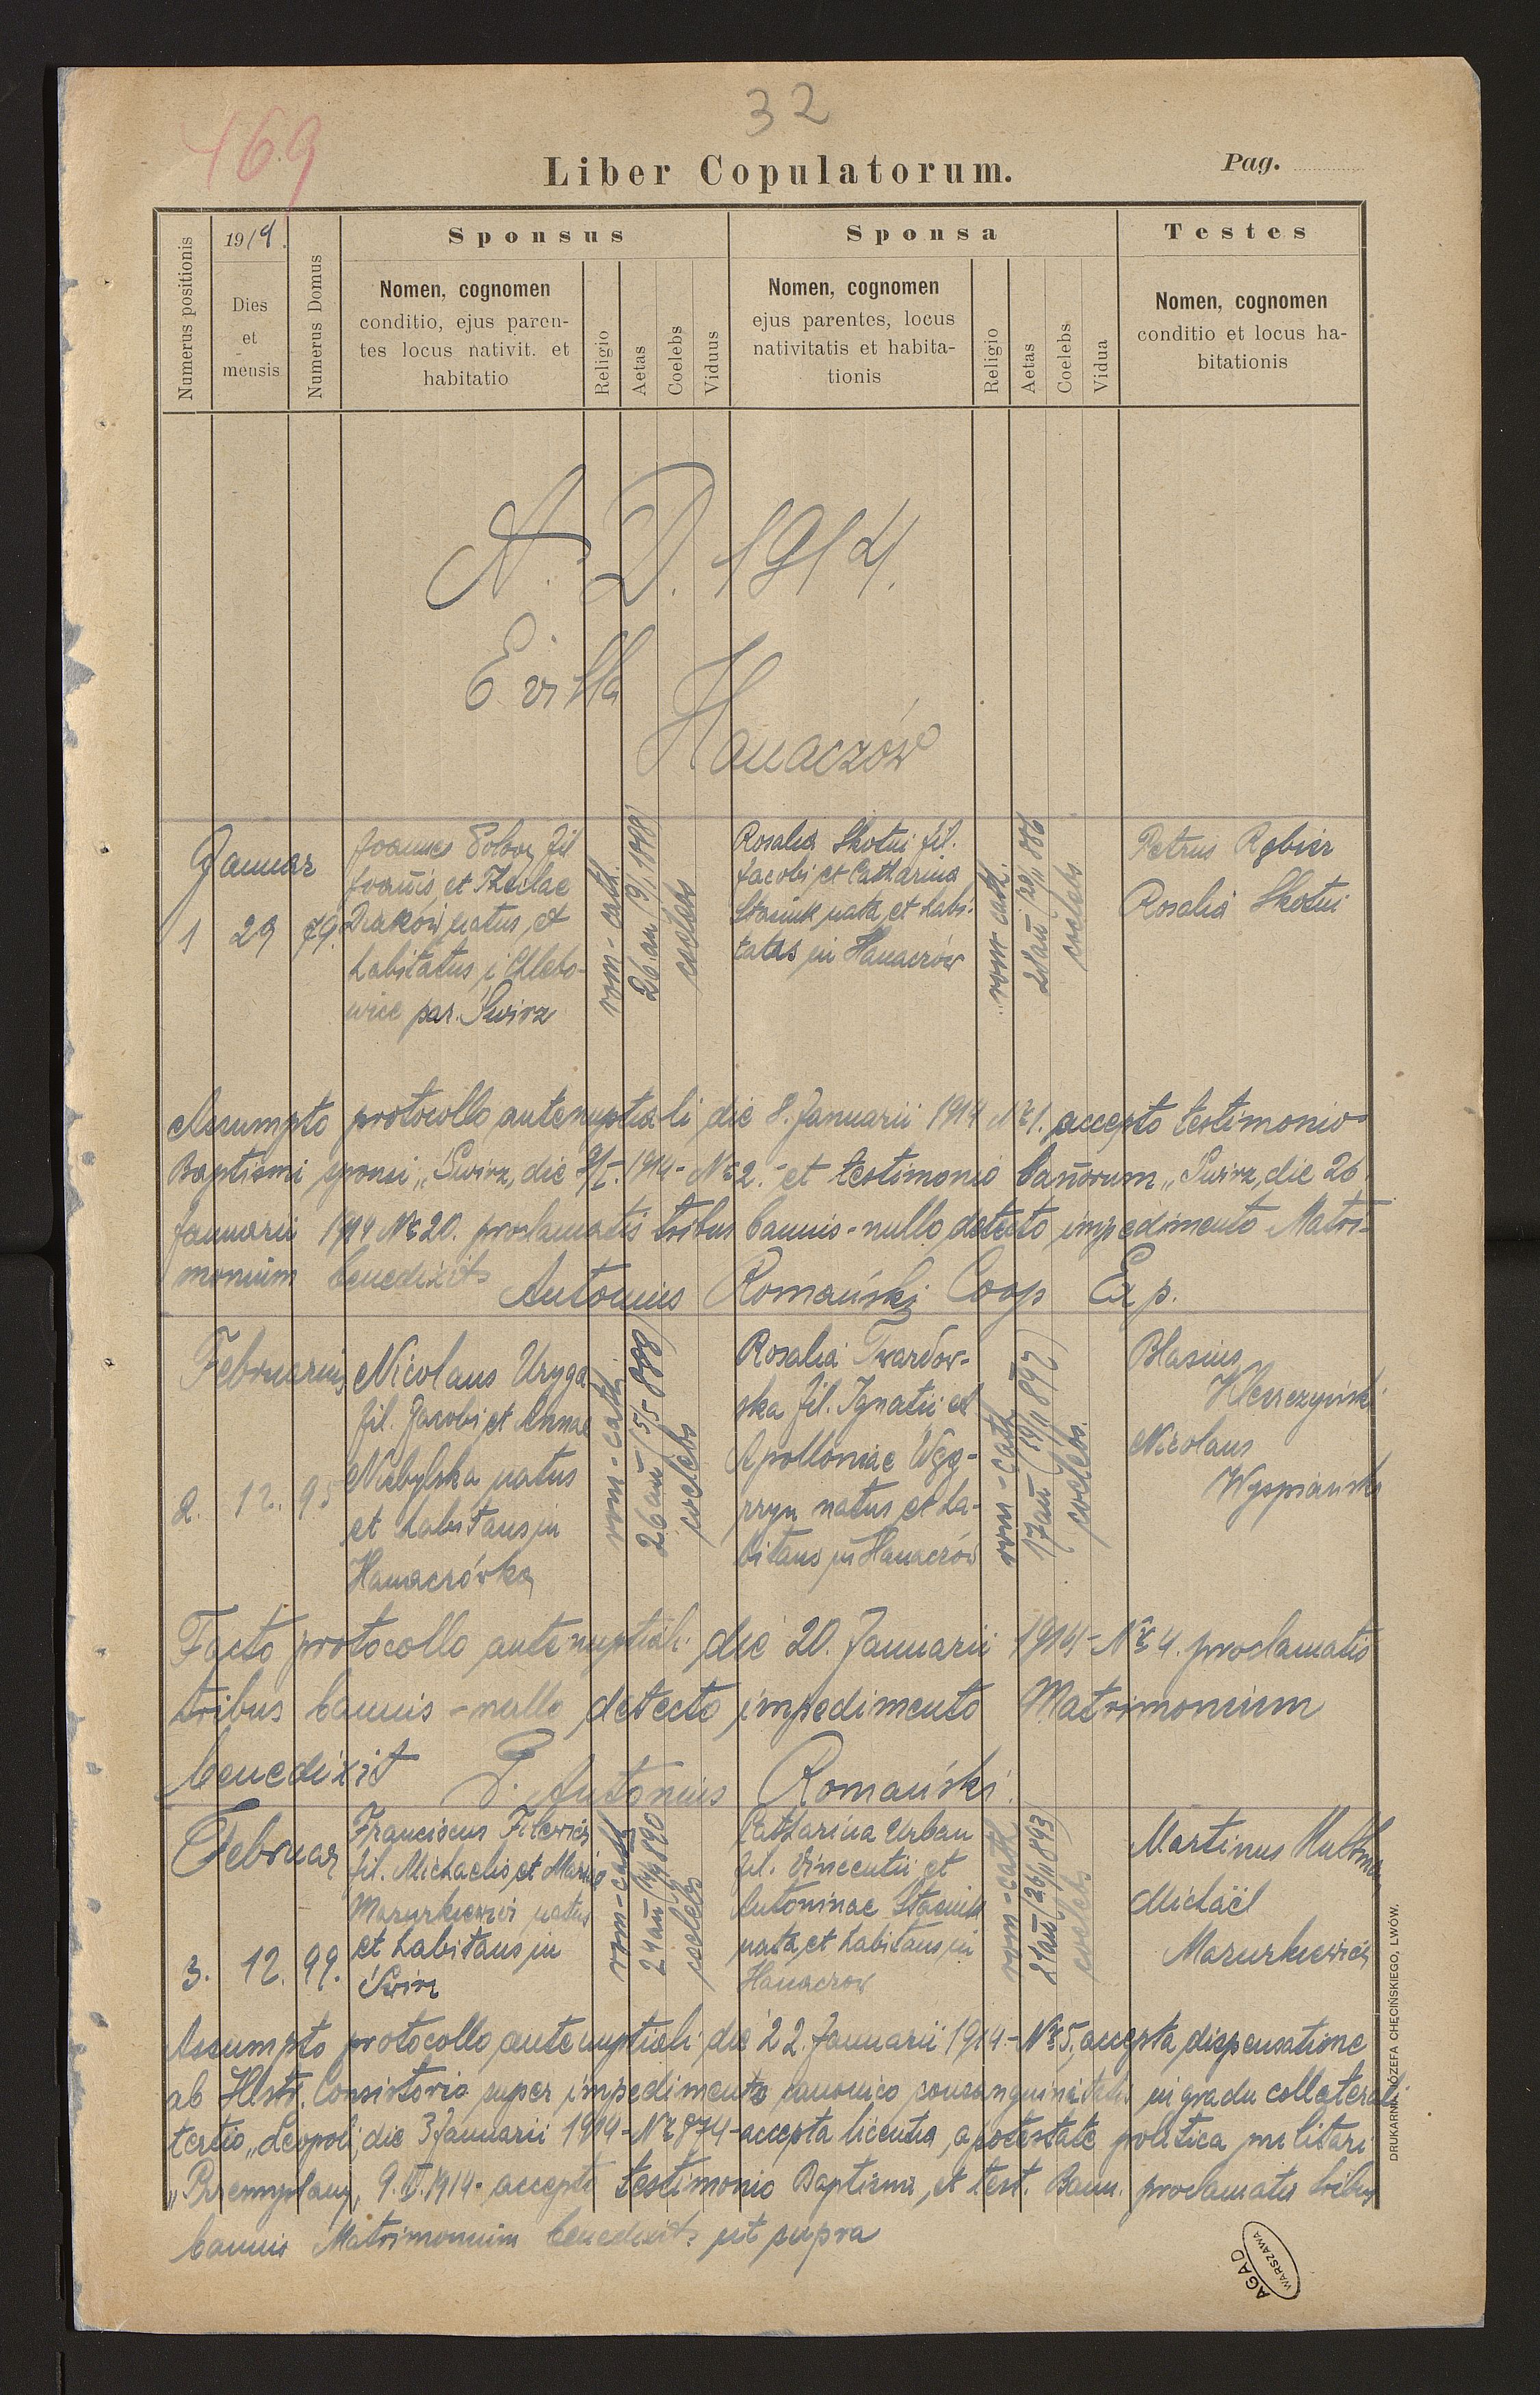 32
469
Liber Copulatorum.
Pag.
Numerus positionis
1914.
Dies
et
mensis
Numerus Domus
Sponsus
Nomen, cognomen
conditio, ejus paren-
tes locus nativit. et
habitatio
Religio
Aetas
Coelebs
Viduus
Sponsa
Nomen, cognomen
ejus parentes, locus
nativitatis et habita-
tionis
Religio
Aetas
Coelebs
Vidua
Testes
Nomen, cognomen
conditio et locus ha-
bitationis
A. D. 1914.
E villa
Hanaczów
Januar
1 29 79.
Joannes fil
Joannis et Theclae
natus et
habitatus i Chlebo-
wice par. Świrz
rom-cath.
26 an
coelebs
Rosalia Skotni fil.
Jacobi et Catharina
Stasiuk nata et habi-
tatas in Hanaczów
rom-cath.
coelebs
Petrus
Rosalia Skotni
Assumpto protocollo antenuptiali die 8. Januarii 1914 Nr 1. accepto testimonio
Baptismi sponsi „Świrz, die 1914 - Nr 2. - et testimonio bannorum „Świrz, die 26
Januarii 1914 Nr 20. proclamatis tribus bannis - nullo detecto impedimento Matri-
monium benedixit
Antonius Romański Coop Exp.
Februarius
2. 12. 95
Nicolaus Uryga
fil. Jacobi et Annae
Niebylska natus
et habitans in
Hanaczówka
rom-cath.
26 ann (5/5 888)
coelebs
Rosalia Twardow-
ska fil. Ignatii et
Apolloniae Węg-
rzyn natus et ha-
bitans in Hanaczów
rom-cath
17 ann
coelebs.
Blasius
Nicolaus
Wyspiański
Facto protocollo antenuptiali die 20. Januarii 1914 - Nr 4. proclamatis
tribus bannis - nullo detecto impedimento Matrimonium
benedixit P. Antonius Romański.
Februar
3. 12. 99.
Franciscus Filewicz
fil. Michaelis et Maria
natus
et habitans in
Świrz
rom-cath
24 ann
coelebs
Catharina Urban
fil. Vincentii et
Antoninae Stasiuk
nata et habitans in
Hanaczow
rom-cath
21 ann (26/11 893)
coelebs
Martinus
Michaël
Mazurkiewicz
Assumpto protocollo antenuptiali die 22. Januarii 1914 - Nr 5, accepta dispensatione
ab Illstr. Consistorio super impedimento canonico consanguinitatis in gradu collaterali
tertio „Leopoli, die 3 Januarii 1914 - Nr 874 - accepta licentia a potestate politica militari
„Przemyślany, 9. II. 1914 - accepto testimonio Baptismi, et test. Bann. proclamatis tribus
bannis Matrimonium benedixit ut supra
DRUKARNIA JÓZEFA CHĘCIŃSKIEGO, LWÓW.
AGAD
WARSZAWA